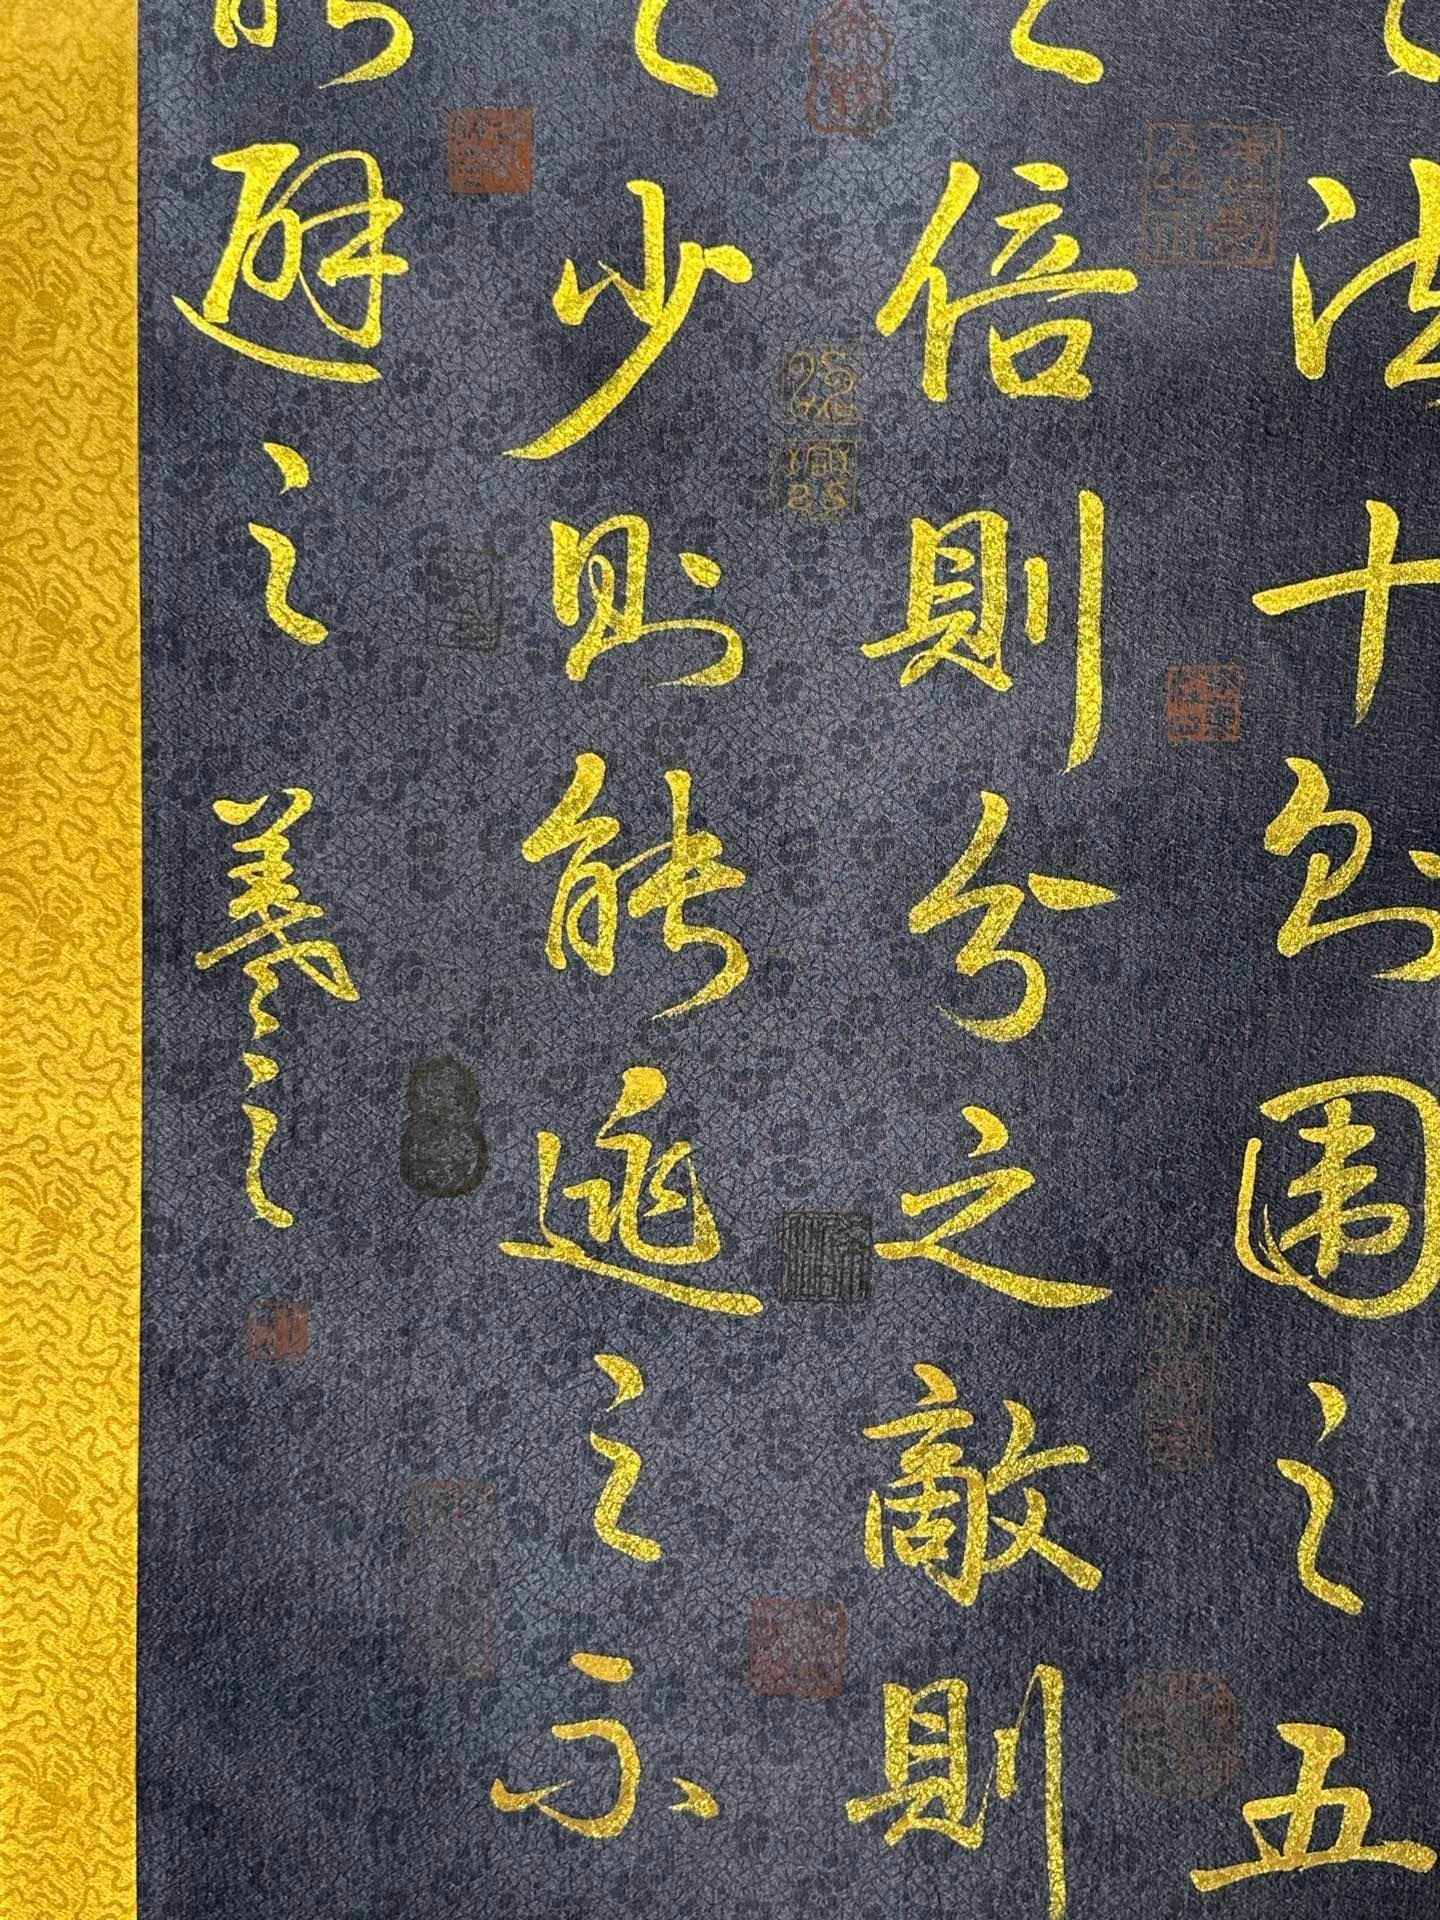 法十則圍之五
之倍則分之敵則
之少則能逃之不
能避之
羲之